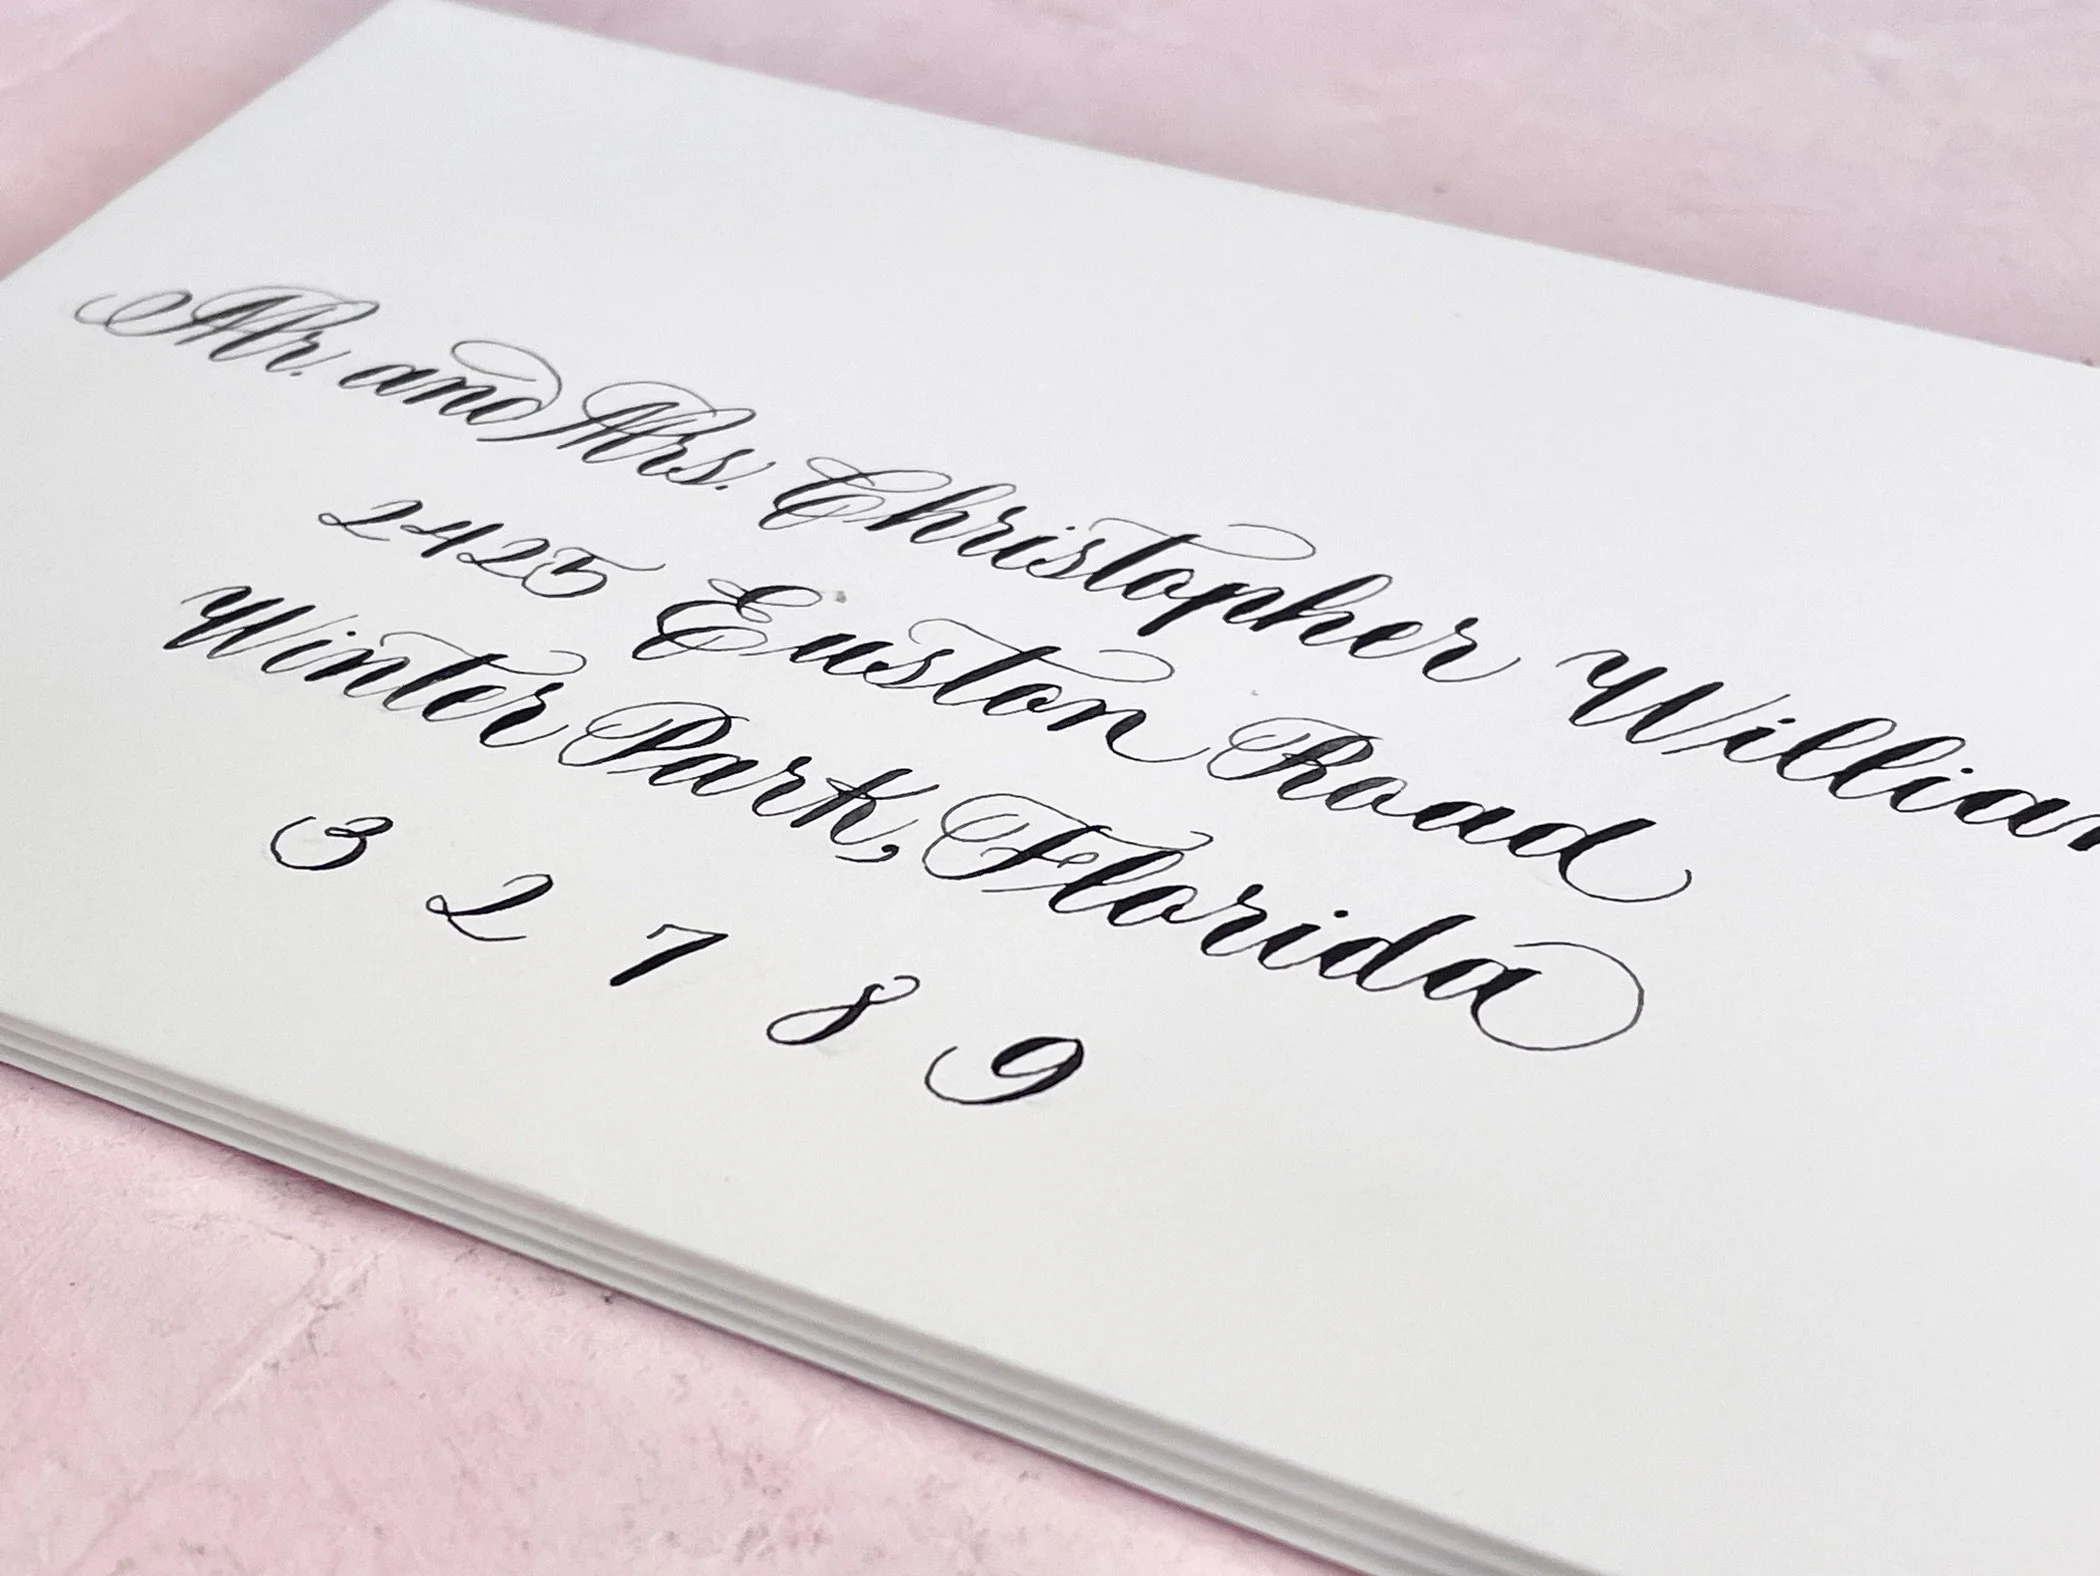 Mr. and Mrs. Christopher
2425 Euston Road
Winter Park, Florida
3 2 7 8 9